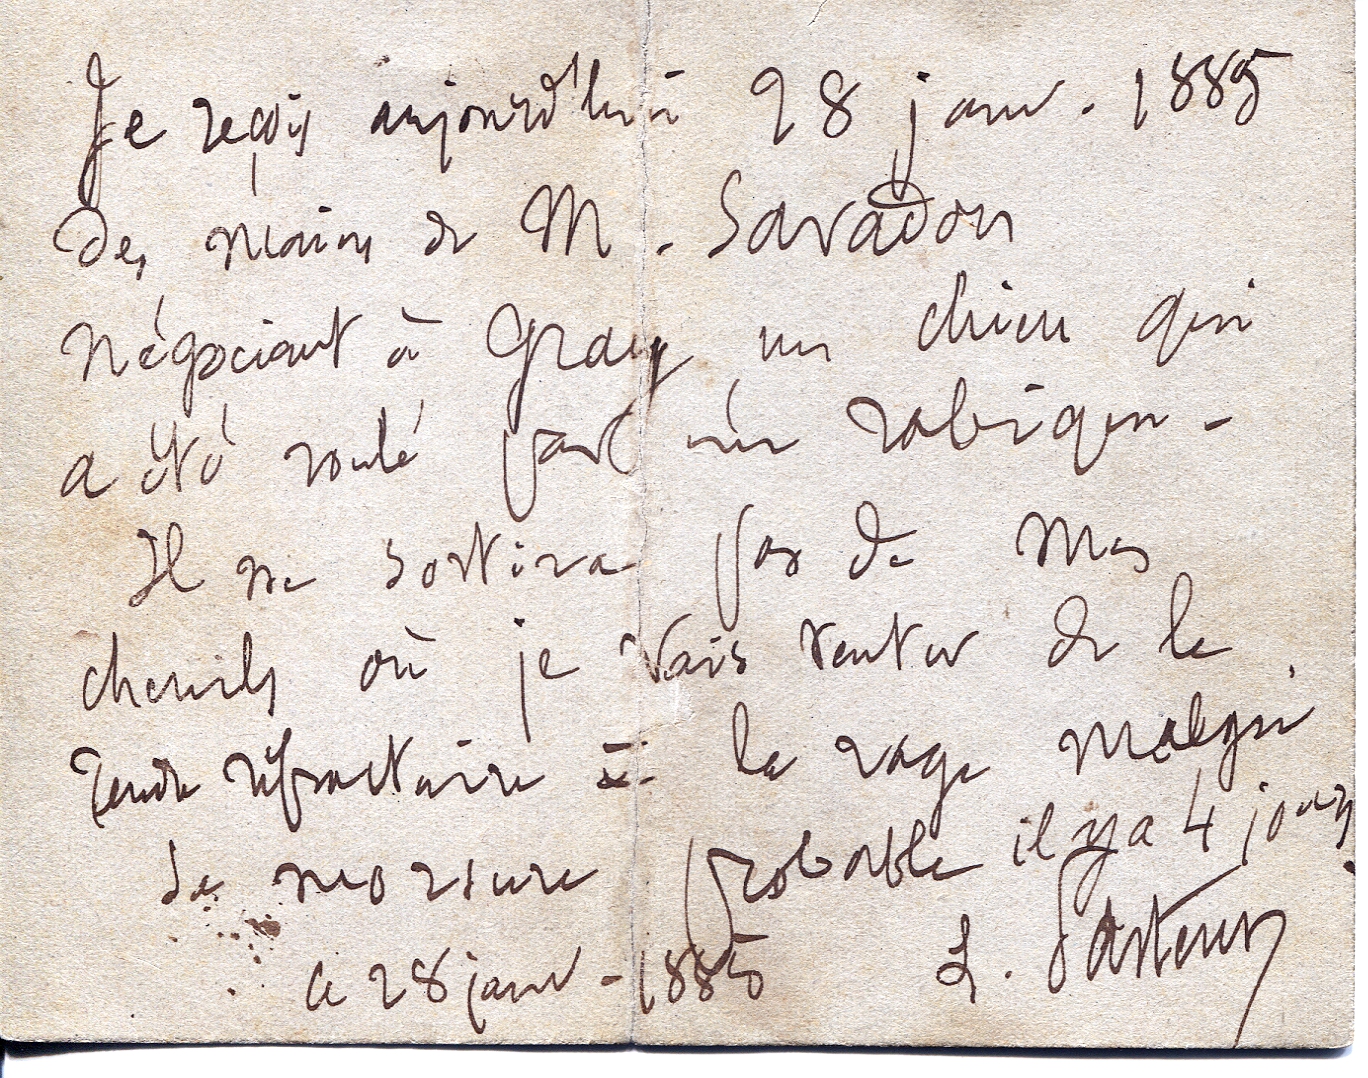 Je reçois aujourd'hui 28 janv. 1885
des mains de M. Savadon
négociant à Gray un chien qui
a été roulé par un rabique.
Il ne sortira pas de mes
chenils où je vais tenter de le
rendre réfractaire à la rage malgré
sa morsure probable il y a 4 jours.
ce 28 janv. 1885 L. Pasteur